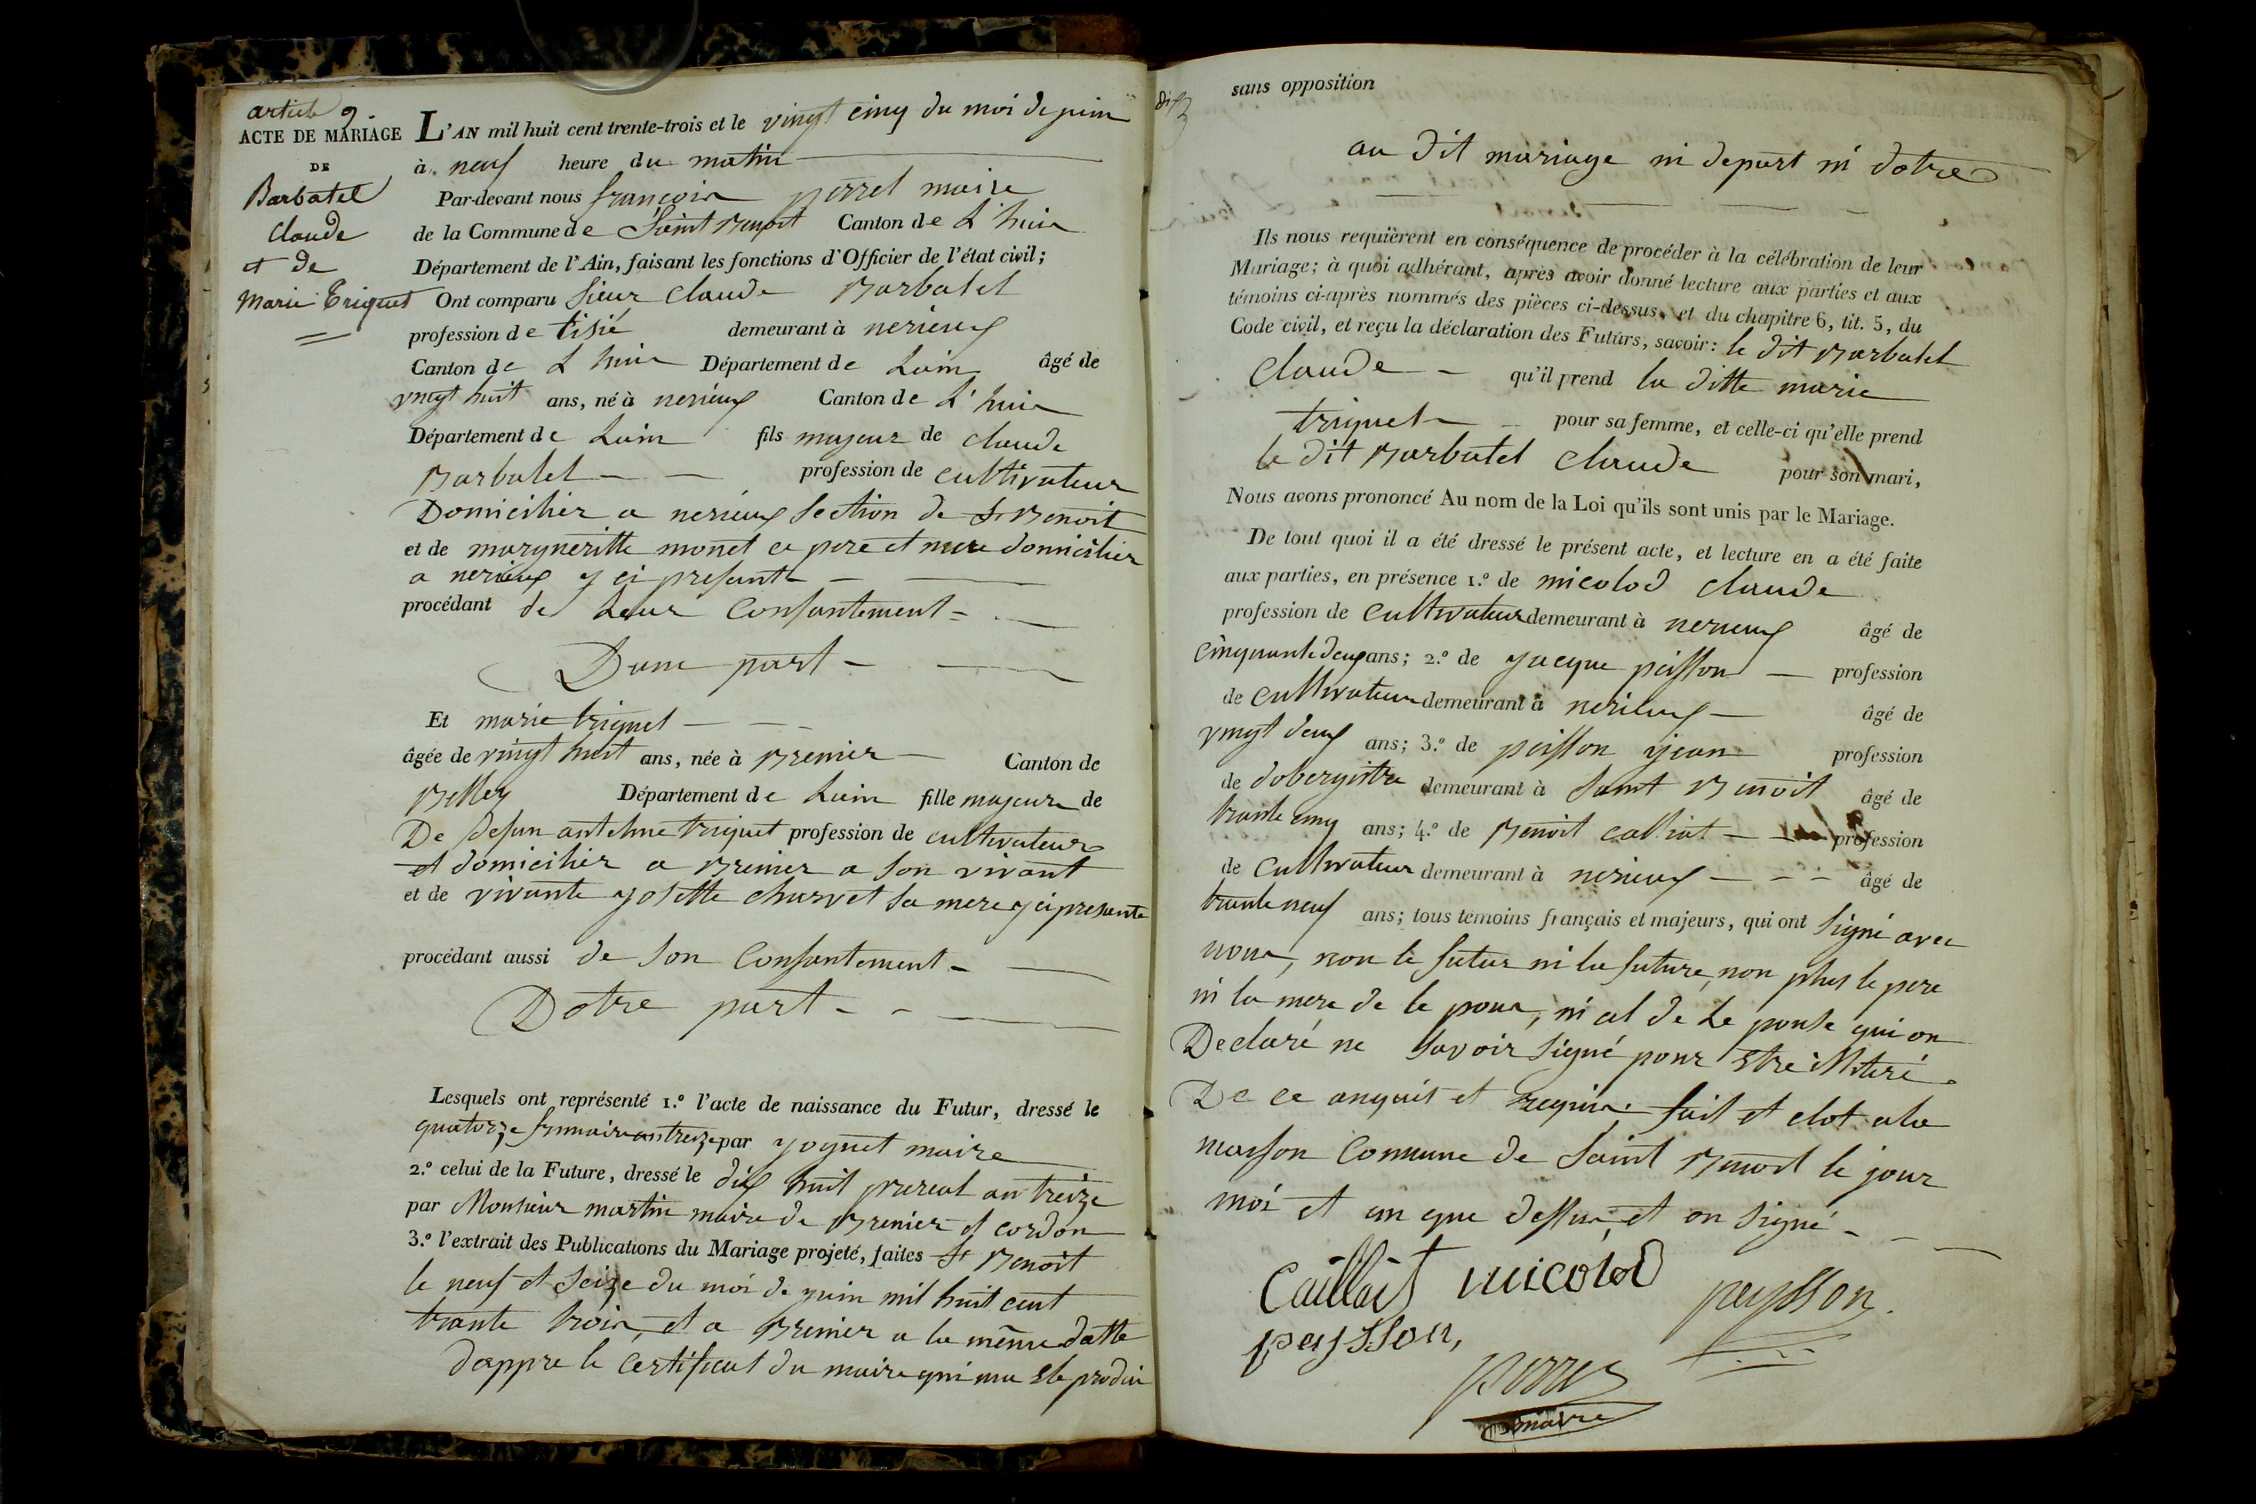 article 9
ACTE DE MARIAGE
DE
Barbatel
Claude
et de
Marie Triquet
L'AN mil huit cent trente-trois et le vingt cinq du moi de juin
à neuf heure du matin
Par-devant nous françois perret maire
de la Commune de Saint Benoit Canton de L'huis
Département de l'Ain, faisant les fonctions d'Officier de l'état civil;
Ont comparu Sieur Claude Barbatel
profession de tisié demeurant à nerieux
Canton de L huis Département de Lain âgé de
vingt huit ans, né à nerieux Canton de L'huis
Département de Lain fils majeur de claude
Barbatel profession de cultivateur
Domicilier a nerieux Section de St Benoit
et de margueritte monet ce pere et mere domicilier
a nerieux y ci presante
procédant de Leur Consantement
Dune part
Et marie triquet
âgée de vingt huit ans, née à Brenier Canton de
Belley Département de Lain fille majeure de
De defun antelme triquet profession de cultivateur
et domicilier a Brenier a son vivant
et de vivante yosette charvet sa mere y ci presente
procédant aussi de son Consantement
Dotre part
Lesquels ont représenté 1.º l'acte de naissance du Futur, dressé le
quatorze frimaire an treize par yoguet maire
2.º celui de la Future, dressé le dix huit prereal an treize
par Monsieur martin maire de Brenier et cordon
3.º l'extrait des Publications du Mariage projeté, faites St Benoit
le neuf et seize du moi de juin mil huit cent
trante trois, et a Brenier a la même datte
dappre le certificat du maire qui ma ete produi
sans opposition
au dit mariage ni depart ni dotre
Ils nous requièrent en conséquence de procéder à la célébration de leur
Mariage; à quoi adhérant, après avoir donné lecture aux parties et aux
témoins ci-après nommés des pièces ci-dessus, et du chapitre 6, tit. 5, du
Code civil, et reçu la déclaration des Futurs, savoir: le dit Barbatel
Claude qu'il prend la ditte marie
triquet pour sa femme, et celle-ci qu'elle prend
le dit Barbatel Claude pour son mari,
Nous avons prononcé Au nom de la Loi qu'ils sont unis par le Mariage.
De tout quoi il a été dressé le présent acte, et lecture en a été faite
aux parties, en présence 1.º de micolod claude
profession de cultivateur demeurant à nerieux âgé de
cinquante deux ans; 2.º de yacque peisson profession
de cultivateur demeurant à nerieux âgé de
vingt deux ans; 3.º de peisson yean profession
de dobergistre demeurant à Saint Benoit âgé de
trante cinq ans; 4.º de Benoit calliat profession
de Cultivateur demeurant à nerieux âgé de
trante neuf ans; tous témoins français et majeurs, qui ont Signé avec
nous, non le futur ni la future, non plus le pere
ni la mere de le pous, ni cel de Le pouse qui on
Declaré ne savoir signé pour Etre illiteré
De ce anquis et requis. fait et clot ala
maison Commune de Saint Benoit le jour
moi et an que dessus, et on signé
Caillat micolod peysson
peysson,
perret
maire